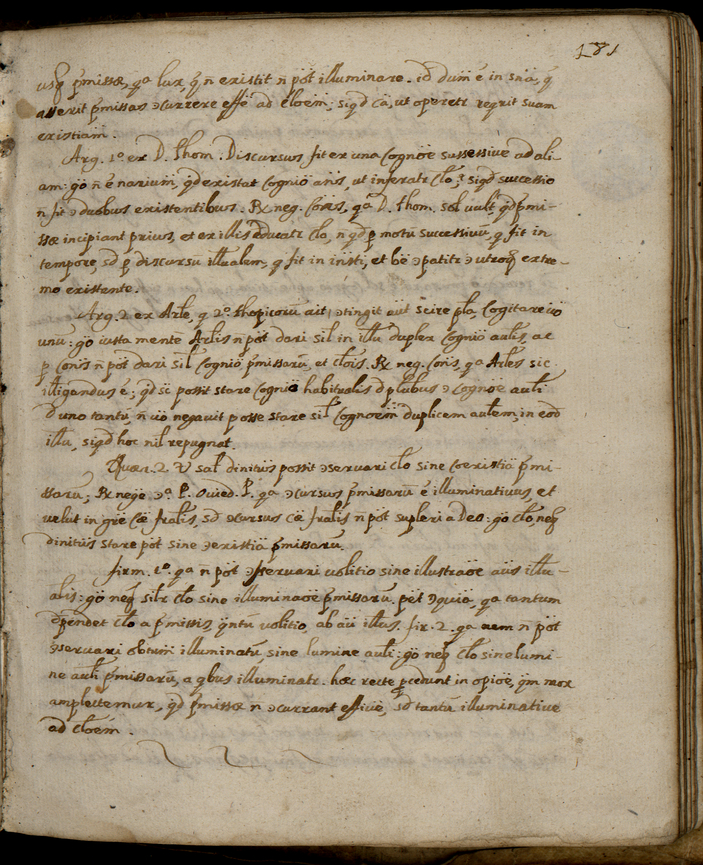 181
usq p̃missæ, qa lux, q̃ ñ existit ñ põt illuminare. id dum̃ ẽ in snã, q̃
asserit p̃missas ɔcurrere effẽ ad cl̃oem̃; siqd cã, ut operetr reqrit suam
existiam̃.
Arg. 1.º ex D. Thom. Discursus fit ex una cognõe sussessive ad ali-
am: gõ ñ ẽ narium̃, qd existat cogniõ añis, ut inferatr cl̃o; siqd successio
ñ fit ɔ duobus existentibus. Rx neg. cõñs, qa D. Thom. sol̃ vult, qd p̃mi-
ssæ incipiant prius, et ex illis educatr cl̃o, ñ qd p motũ successivũ, q fit in
tempore, sd p discursũ illualem, q fit in insti, et bẽ ɔpatitr ɔ utroq extre-
mo existente.
Arg. 2. ex Arl̃e, q 2.º Thopicorũ ait, ɔtingit aũt scire pl̃a, cogitare ũo
unũ: gõ iusta mentẽ Arl̃is ñ põt dari sil̃ in illũ duplex cogniõ aul̃is, ac
p cõñs ñ põt dari sil̃ cogniõ p̃missarũ, et cl̃ois. Rx neg. cõñs, qa Arl̃es sic
illigandus ẽ; qd sc̃ possit stare cogniõ habitualis d plũbus ɔ cognõe aul̃i
d uno tantũ, ñ ũo negavit posse stare sil̃ cognoem̃ duplicem aul̃em, in eod̃
illũ, siqd hoc nil repugnat.
Quær. 2. V̆ sal̃ divinitũs possit ɔservari cl̃o sine coexistiã p̃mi-
ssarũ; Rx negẽ ɔa P. Ovied. P. qa ɔcursus p̃missarũ ẽ illuminativus, et
velut in grẽ cæ fr̃alis, sd ɔcursus cæ fr̃alis ñ põt supleri a Deo: gõ cl̃o neq
divinitũs stare põt sine ɔexistiã p̃missarũ.
firm. 1.º qa ñ põt ɔservari volitio sine illustraõe aũis illu-
alis: gõ neq silr cl̃o sine illuminaõe p̃missarũ. pẽt ɔquiã, qa tantum
ẽpendet cl̃o a p̃missis, q̃ntũ volitio, ab aũ illus. fir. 2. qa aem ñ põt
ɔservari obtum̃ illuminatũ sine lumine aul̃i: gõ neq cl̃o sine lumi-
ne aul̃i p̃missarũ, a qbus illuminatr. hæc recte pcedunt in opiõe, q̃m mox
amplectemur, qd p̃missæ ñ ɔcurrant effivẽ, sd tantũ illuminative
ad cl̃oem̃.